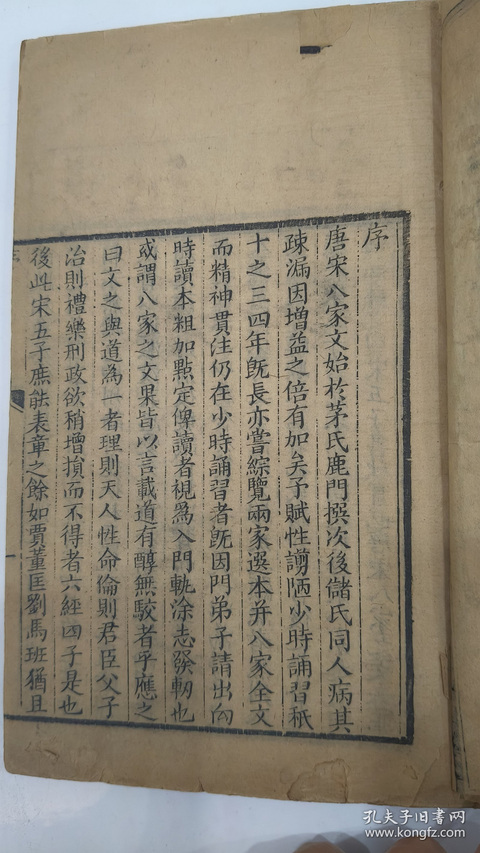 序
唐宋八家文始於茅氏鹿門撰次後儲氏同人病其
疎漏因增益之倍有加矣予賦性謭陋少時誦習秖
十之三四年旣長亦嘗綜覽兩家選本并八家全文
而精神貫注仍在少時誦習者旣因門弟子請出向
時讀本粗加點定俾讀者視爲入門軌涂志發軔也
或謂八家之文果皆以言載道有醇無駁者乎應之
曰文之與道為一者理則天人性命倫則君臣父子
治則禮樂刑政欲稍增損而不得者六經四子是也
後此宋五子庶能表章之餘如賈董匡劉馬班猶且
孔夫子旧书网
www.kongfz.com